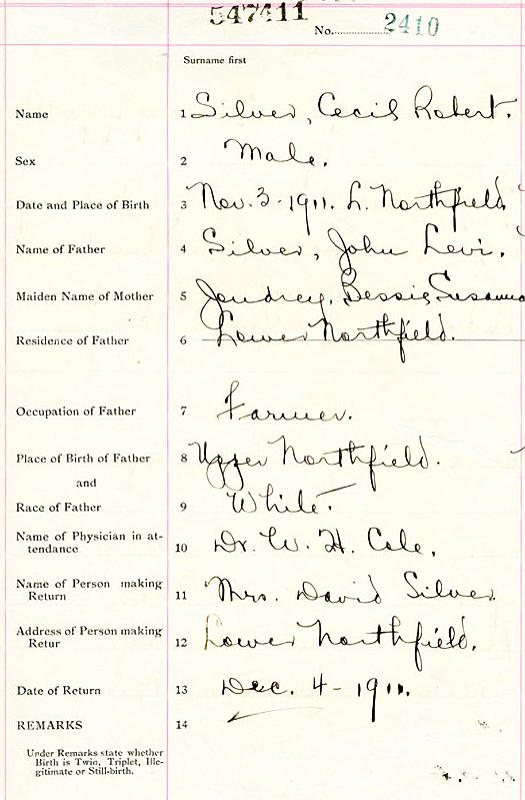 547411
No. 2410
Surname first
Name 1 Silver, Cecil Robert.
Sex 2 Male.
Date and Place of Birth 3 Nov. 3 - 1911. L. Northfield
Name of Father 4 Silver, John Levi.
Maiden Name of Mother 5 Joudrey, Bessie Susanna
Residence of Father 6 Lower Northfield.
Occupation of Father 7 Farmer.
Place of Birth of Father 8 Upper Northfield.
and
Race of Father 9 White.
Name of Physician in at-
tendance 10 Dr. W. H. Cole.
Name of Person making
Return 11 Mrs. David Silver.
Address of Person making
Retur 12 Lower Northfield.
Date of Return 13 Dec. 4 - 1911.
REMARKS 14
Under Remarks state whether
Birth is Twin, Triplet, Ille-
gitimate or Still-birth.